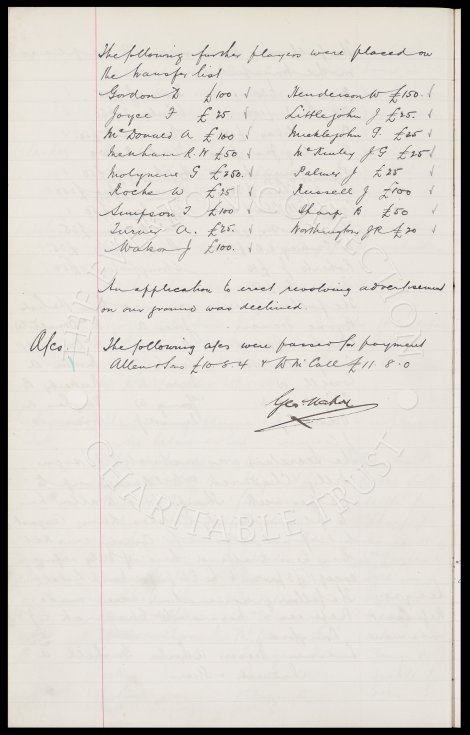 The following further players were placed on
the transfer list
Gordon D £100. √ Henderson W £150. √
Joyce F £25 √ Littlejohn J £25. √
McDonald A £100 √ Micklejohn F. £25 √
Menham R. W £50 √ McKinley J G £25 √
Molyneux G £250. √ Palmer J £25 √
Roche W £25 √ Russell J £100 √
Simpson T £100 √ Sharp B £50 √
Turner A. £25. √ Worthington J R £20 √
Watson J £100. √
An application to erect revolving advertisement
on our ground was declined.
A/cs. The following a/cs were passed for payment
Allen & Sons £10-8-4 & W McCall £11. 8. 0
Geo. Mahon
THE EVERTON COLLECTION
CHARITABLE TRUST